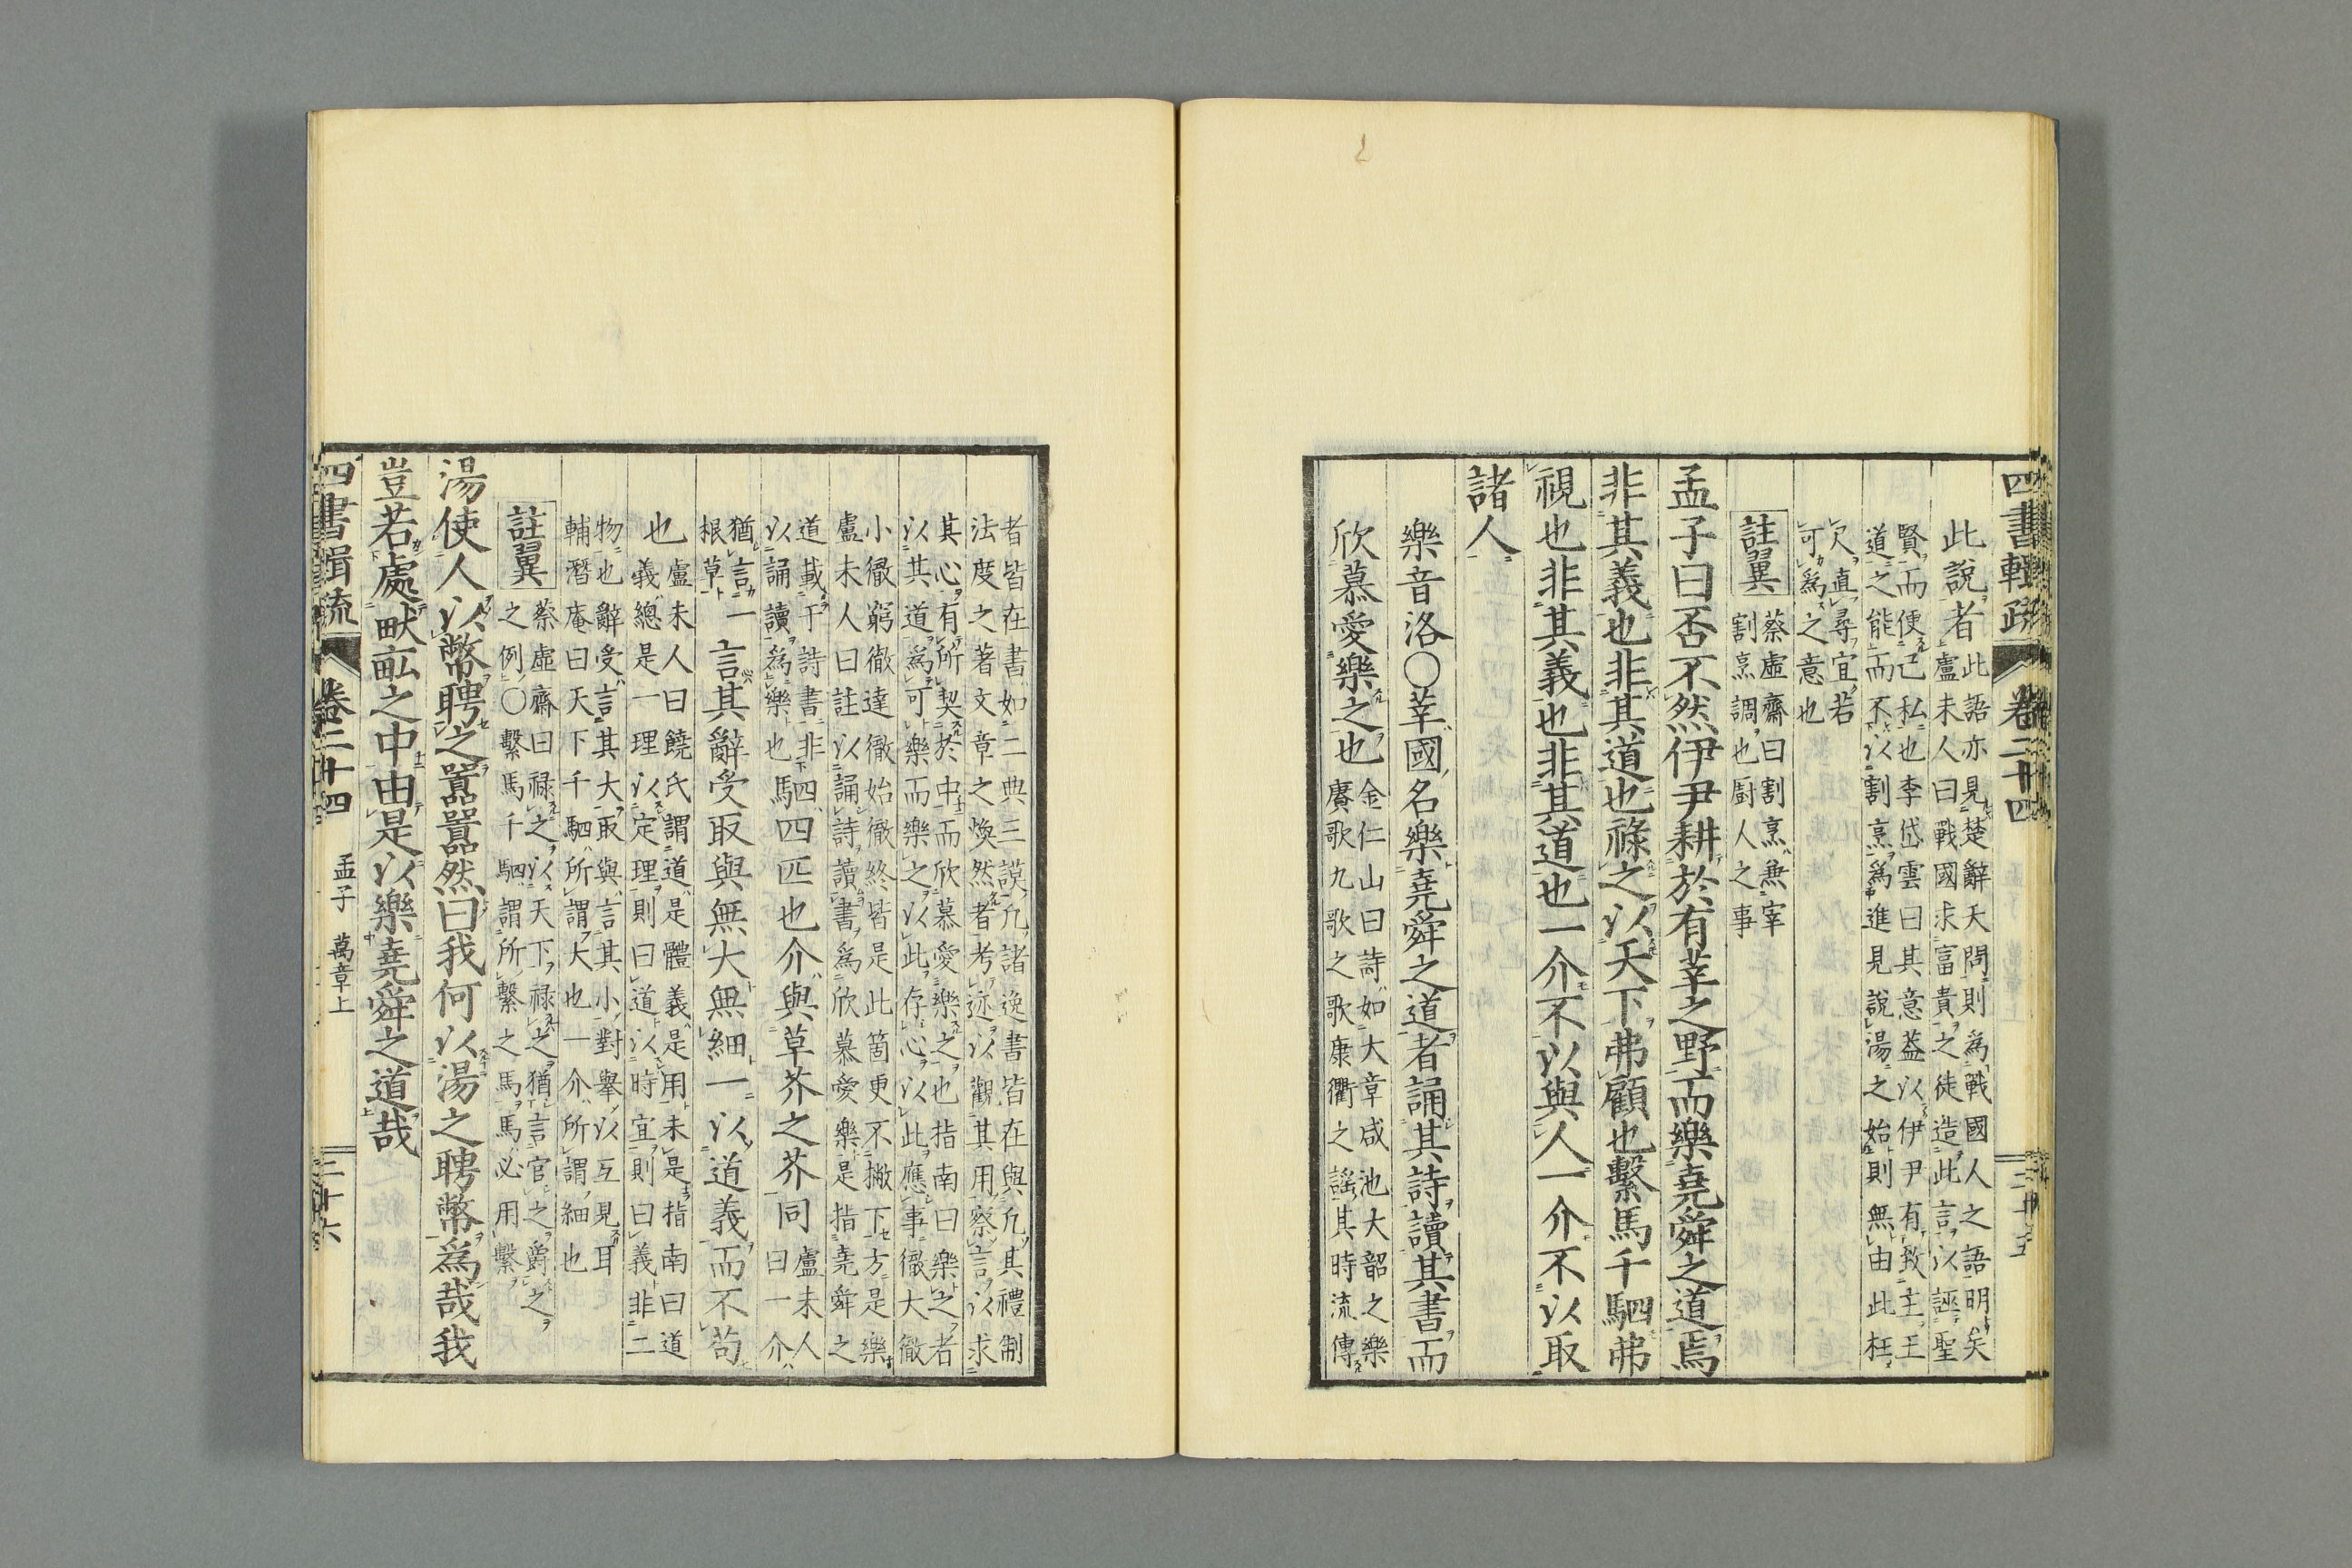 四書輯疏 卷二十四 二十五
此說者
此語亦見楚辭天問則為戰國人之語明矣
盧未人曰戰國求富貴之徒造此言以誣聖
賢而便己私也李岱雲曰其意葢以伊尹有致主王
道之能而不以割烹為進見說湯之始則無由此枉
尺直尋宜若
可為之意也
註翼
蔡虛齋曰割烹兼宰
割烹調也厨人之事
孟子曰否不然伊尹耕於有莘之野而樂堯舜之道焉
非其義也非其道也祿之以天下弗顧也繫馬千駟弗
視也非其義也非其道也一介不以與人一介不以取
諸人
樂音洛○莘國名樂堯舜之道者誦其詩讀其書而
欣慕愛樂之也
金仁山曰詩如大章咸池大韶之樂
賡歌九歌之歌康衢之謠其時流傳
者皆在書如二典三謨凢諸逸書皆在與凢其禮制
法度之著文章之煥然者考迹以觀其用察言以求
其心有所契於中而欣慕愛樂之也指南曰樂之者
以其道為可樂而樂之以此存心以此應事徹大徹
小徹窮徹達徹始徹終皆是此箇更不撇下方是樂
盧未人曰註以誦詩讀書為欣慕愛樂是指堯舜之
道載于詩書非
以誦讀為樂也
駟四匹也介與草芥之芥同
盧未人
曰一介
猶言一
根草
言其辭受取與無大無細一以道義而不苟
也
盧未人曰饒氏謂道是體義是用未是指南曰道
義總是一理以定理則曰道以時宜則曰義非二
物也辭受言其大取與言其小對舉以互見耳
輔潛庵曰天下千駟所謂大也一介所謂細也
註翼
蔡虛齋曰祿之以天下祿之猶言官之爵之
之例○繫馬千駟謂所繫之馬馬必用繫
湯使人以幣聘之囂囂然曰我何以湯之聘幣為哉我
豈若處畎畝之中由是以樂堯舜之道哉
四書輯疏 卷二十四 孟子 萬章上 二十六